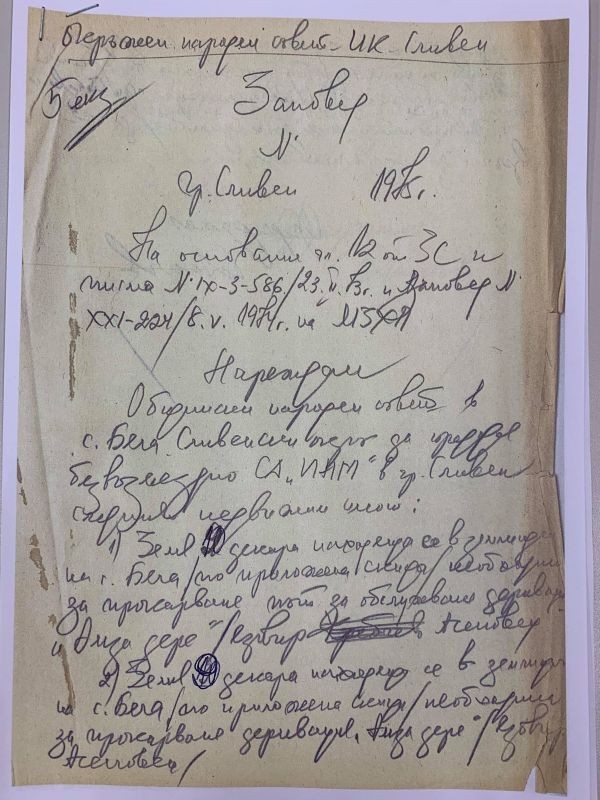 Окръжен народен съвет - ИК - Сливен
5 екз
Заповед
N
гр. Сливен 1975 г.
На основание чл. 12 от ЗС и
писма N IX-3-586/23.II. и Заповед N
XXI-224/8.V.1974г. на
Нареждам
Общински народен съвет в
с. Бяла Сливенски окръг да предаде
безвъзмездно СА "ИПМ" в гр. Сливен
следния недвижим имот:
1) Земя декара находяща се в землището
на с. Бяла /по приложена скица/ необходима
за прокарване път за обслужване деривация
и дере"/язовир Асеновец
2) Земя декара находяща се в землището
на с. Бяла /по приложена скица/ необходима
за прокарване деривация дере"/язовир
Асеновец/